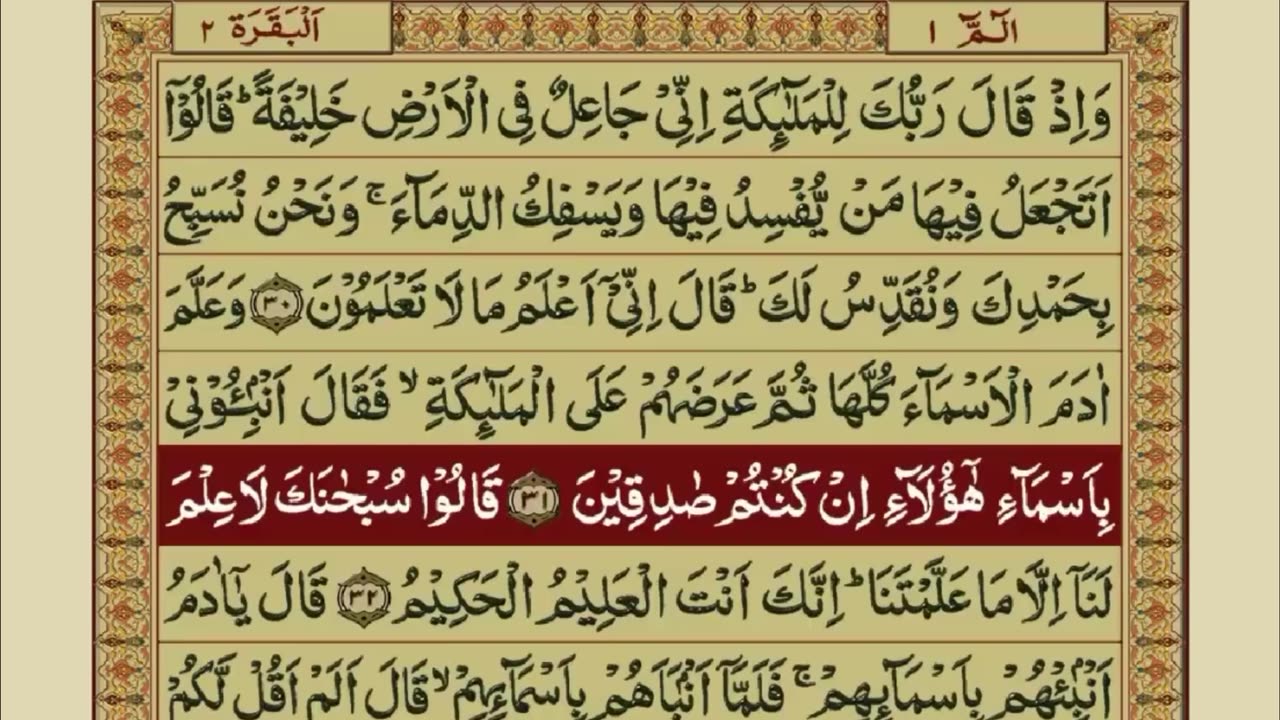 الٓمّٓ ۱
اَلْبَقَرَة ۲
وَاِذْ قَالَ رَبُّكَ لِلْمَلٰٓئِكَةِ اِنِّیْ جَاعِلٌ فِی الْاَرْضِ خَلِیْفَةً ؕ قَالُوْۤا
اَتَجْعَلُ فِیْهَا مَنْ یُّفْسِدُ فِیْهَا وَیَسْفِكُ الدِّمَآءَ ۚ وَنَحْنُ نُسَبِّحُ
بِحَمْدِكَ وَنُقَدِّسُ لَكَ ؕ قَالَ اِنِّیْۤ اَعْلَمُ مَا لَا تَعْلَمُوْنَ ۳۰ وَعَلَّمَ
اٰدَمَ الْاَسْمَآءَ كُلَّهَا ثُمَّ عَرَضَهُمْ عَلَی الْمَلٰٓئِكَةِ ۙ فَقَالَ اَنْۢبِـُٔوْنِیْ
بِاَسْمَآءِ هٰۤؤُلَآءِ اِنْ كُنْتُمْ صٰدِقِیْنَ ۳۱ قَالُوْا سُبْحٰنَكَ لَا عِلْمَ
لَنَاۤ اِلَّا مَا عَلَّمْتَنَا ؕ اِنَّكَ اَنْتَ الْعَلِیْمُ الْحَكِیْمُ ۳۲ قَالَ یٰۤاٰدَمُ
اَنْۢبِئْهُمْ بِاَسْمَآئِهِمْ ۚ فَلَمَّاۤ اَنْۢبَاَهُمْ بِاَسْمَآئِهِمْ ۙ قَالَ اَلَمْ اَقُلْ لَّكُمْ